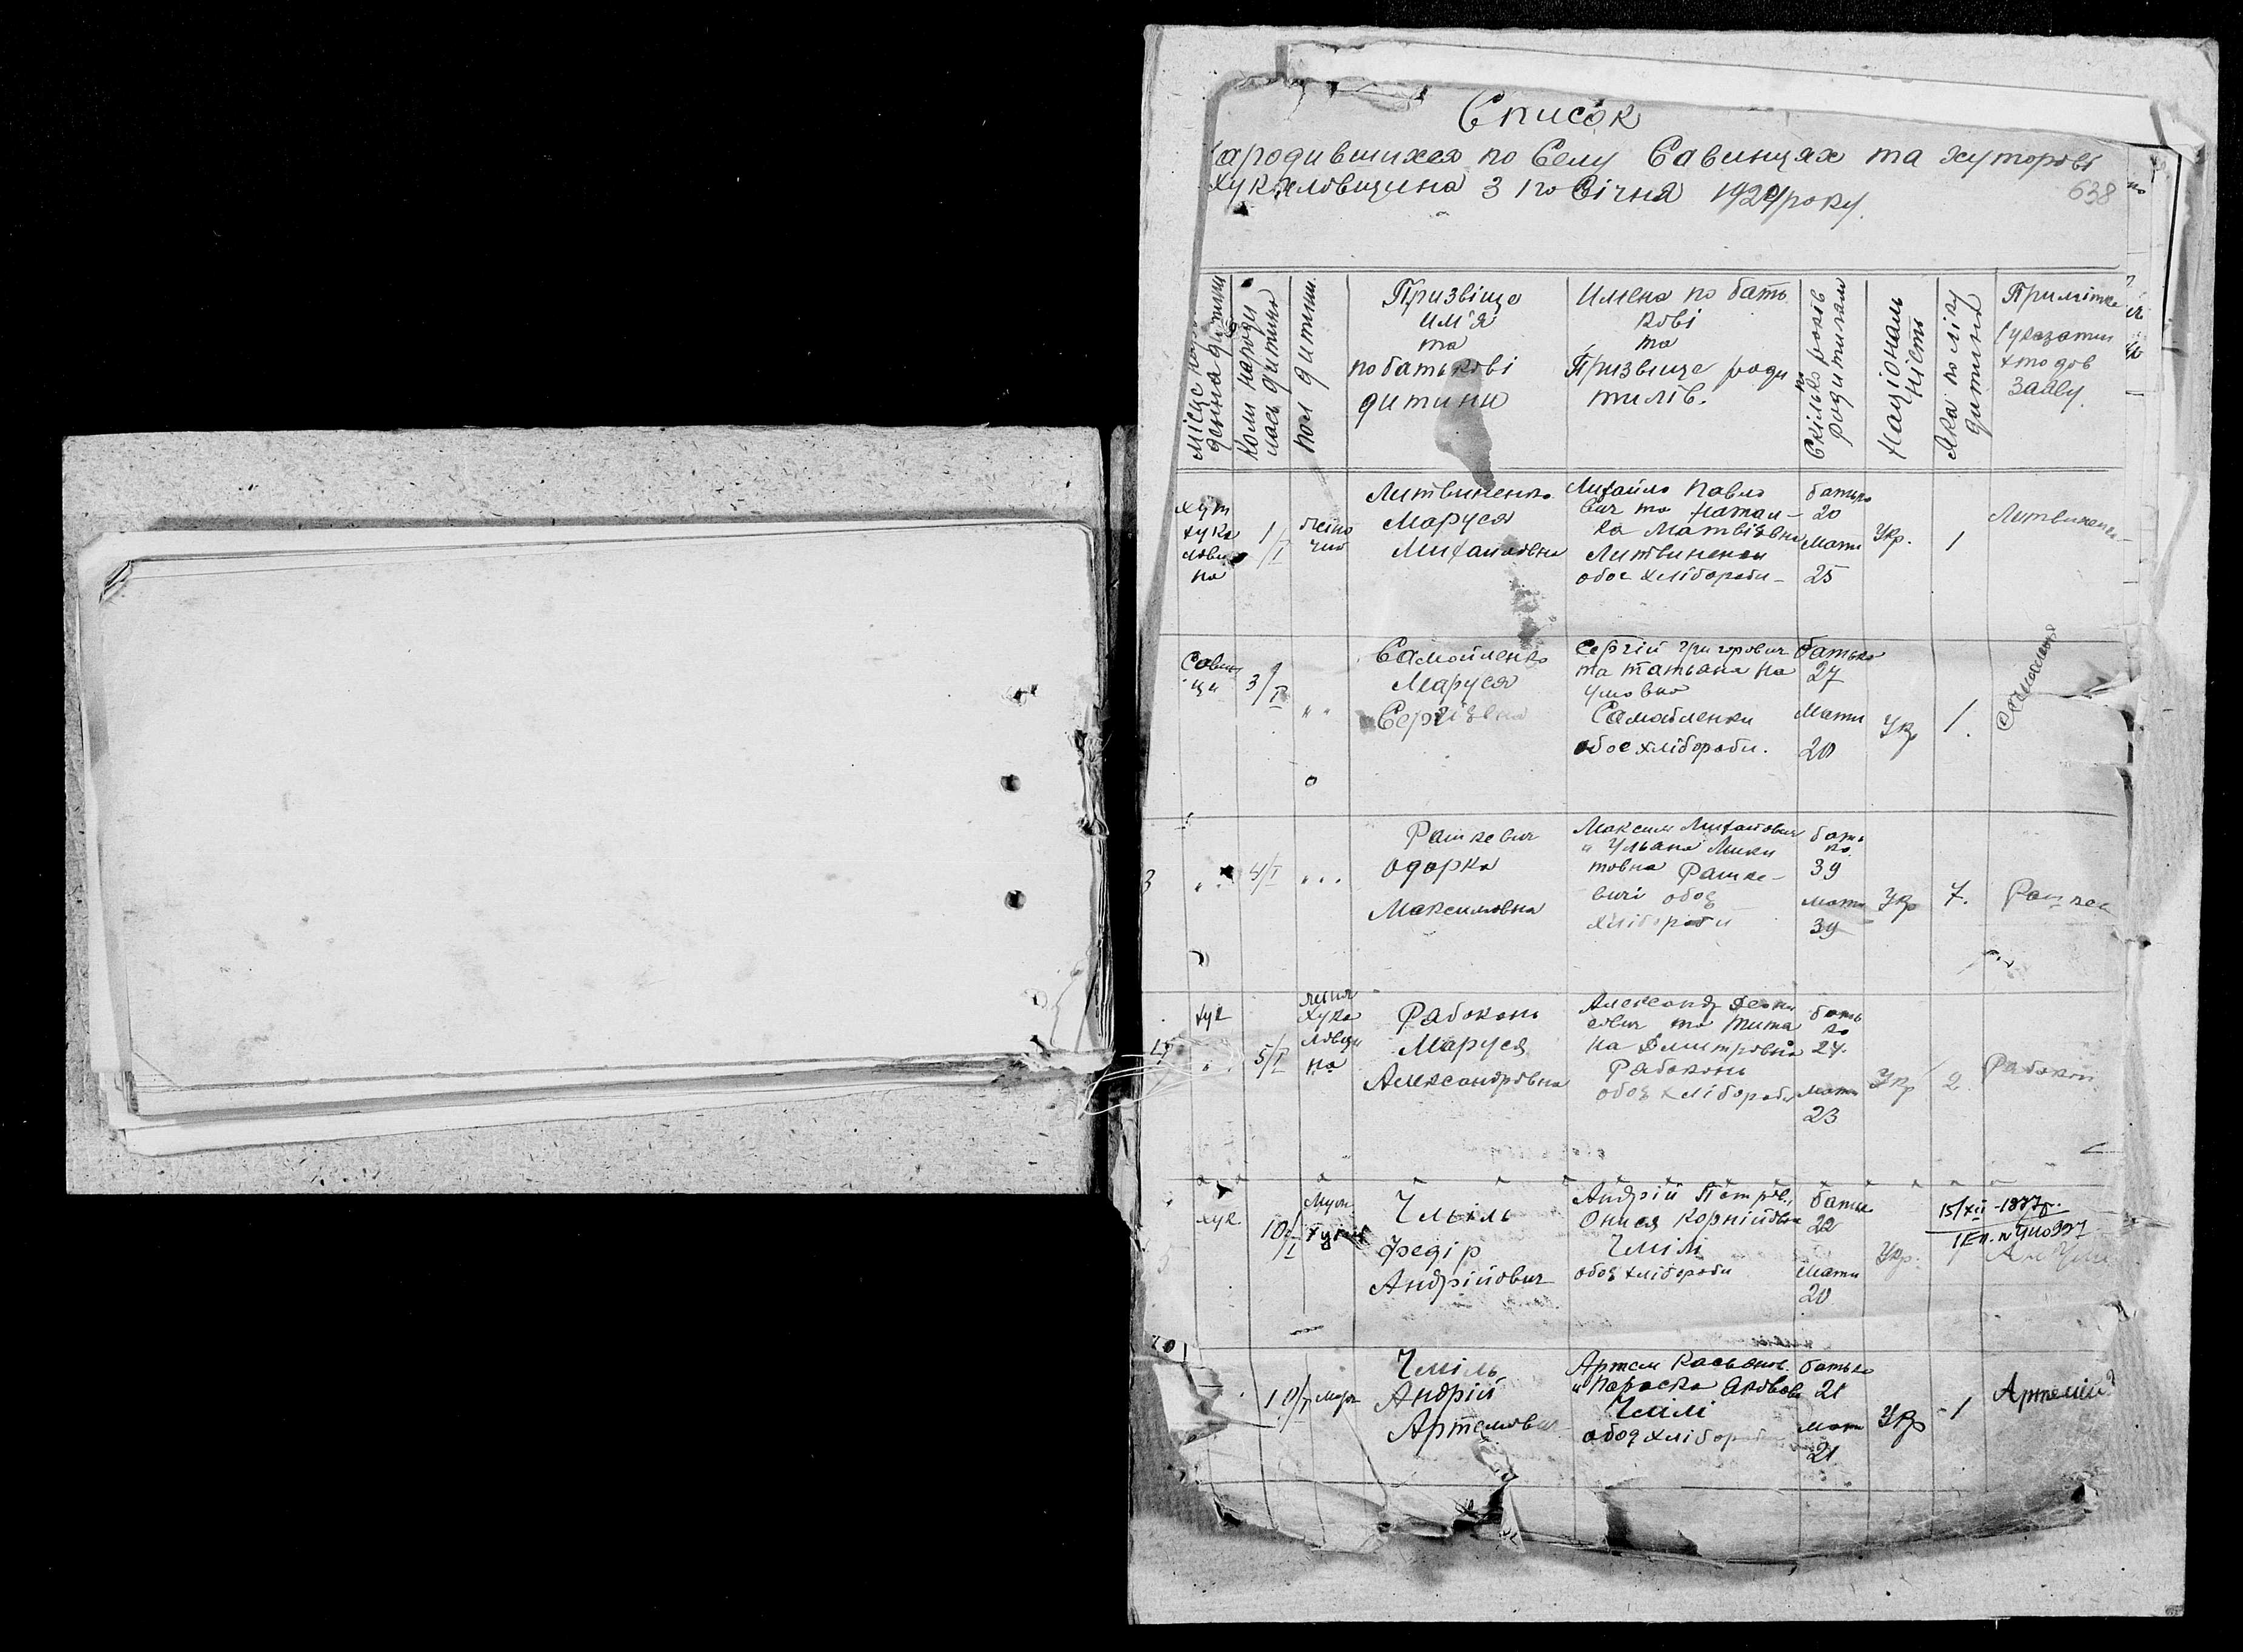 Список
народившихся по Селу Савинцях та хуторові
Хукаловщина З 1го Січня 1924 року.
638
Місце народ
дення дитини
Коли народи
лась дитина
пол дитини.
Призвіще
им'я
та
по батькові
дитини
Имена по бать
кові
та
Призвіще роди
тилів.
Скілько років
родителям
Національ
ність
Яка по ліку
дитина
Примітка
(указати
хто дав
заяву.
хут
Хука
ловщ
на
1/I
жіно
чий
Литвиненко
Маруся
Михайловна
Михайло Павло
вич та Натал-
ка Матвіевна
Литвиненки
обое хлібороби-
батько
20
Мати
25
Укр.
1
Литвинен
Савин
ци
3/I
" "
Самойленко
Маруся
Сергіевна
Сергій Григорович
та Татьана На
умовна
Самойленки
обое хлібороби.
батько
27
Мати
20
Укр
1.
Самойлен
3
" .
4/I
" . .
Рашкевич
Одарка
Максимовна
Максим Михайлович
" Ульана Мики
товна Рашке-
вичі обоє
хлібороби
бать
ко
39
мати
39
Укр
7.
Рашкев
хук
" .
5/I
жіноч
Хука
ловщи
на
Рабоконь
Маруся
Александровна
Александр
та Титя
на Дмитровна
Рабоконь
обоє хлібороби
бать
ко
24.
мати
23
Укр
2.
Рабокон
хук
10/I
Муж.
Чміль
Федір
Андрійович
Андрій Петров.,
Онися Корнійовна
Чмілі
обоє хлібороби
батьк
22
Мати
20
Укр.
15/XII-1937р.
10/I
Муж
Чміль
Андрій
Артемович
Артем Касьянов.
" Параска Яковов
Чмілі
обоє хлібороби
батько
21
мати
21
Укр
-1
Артемій